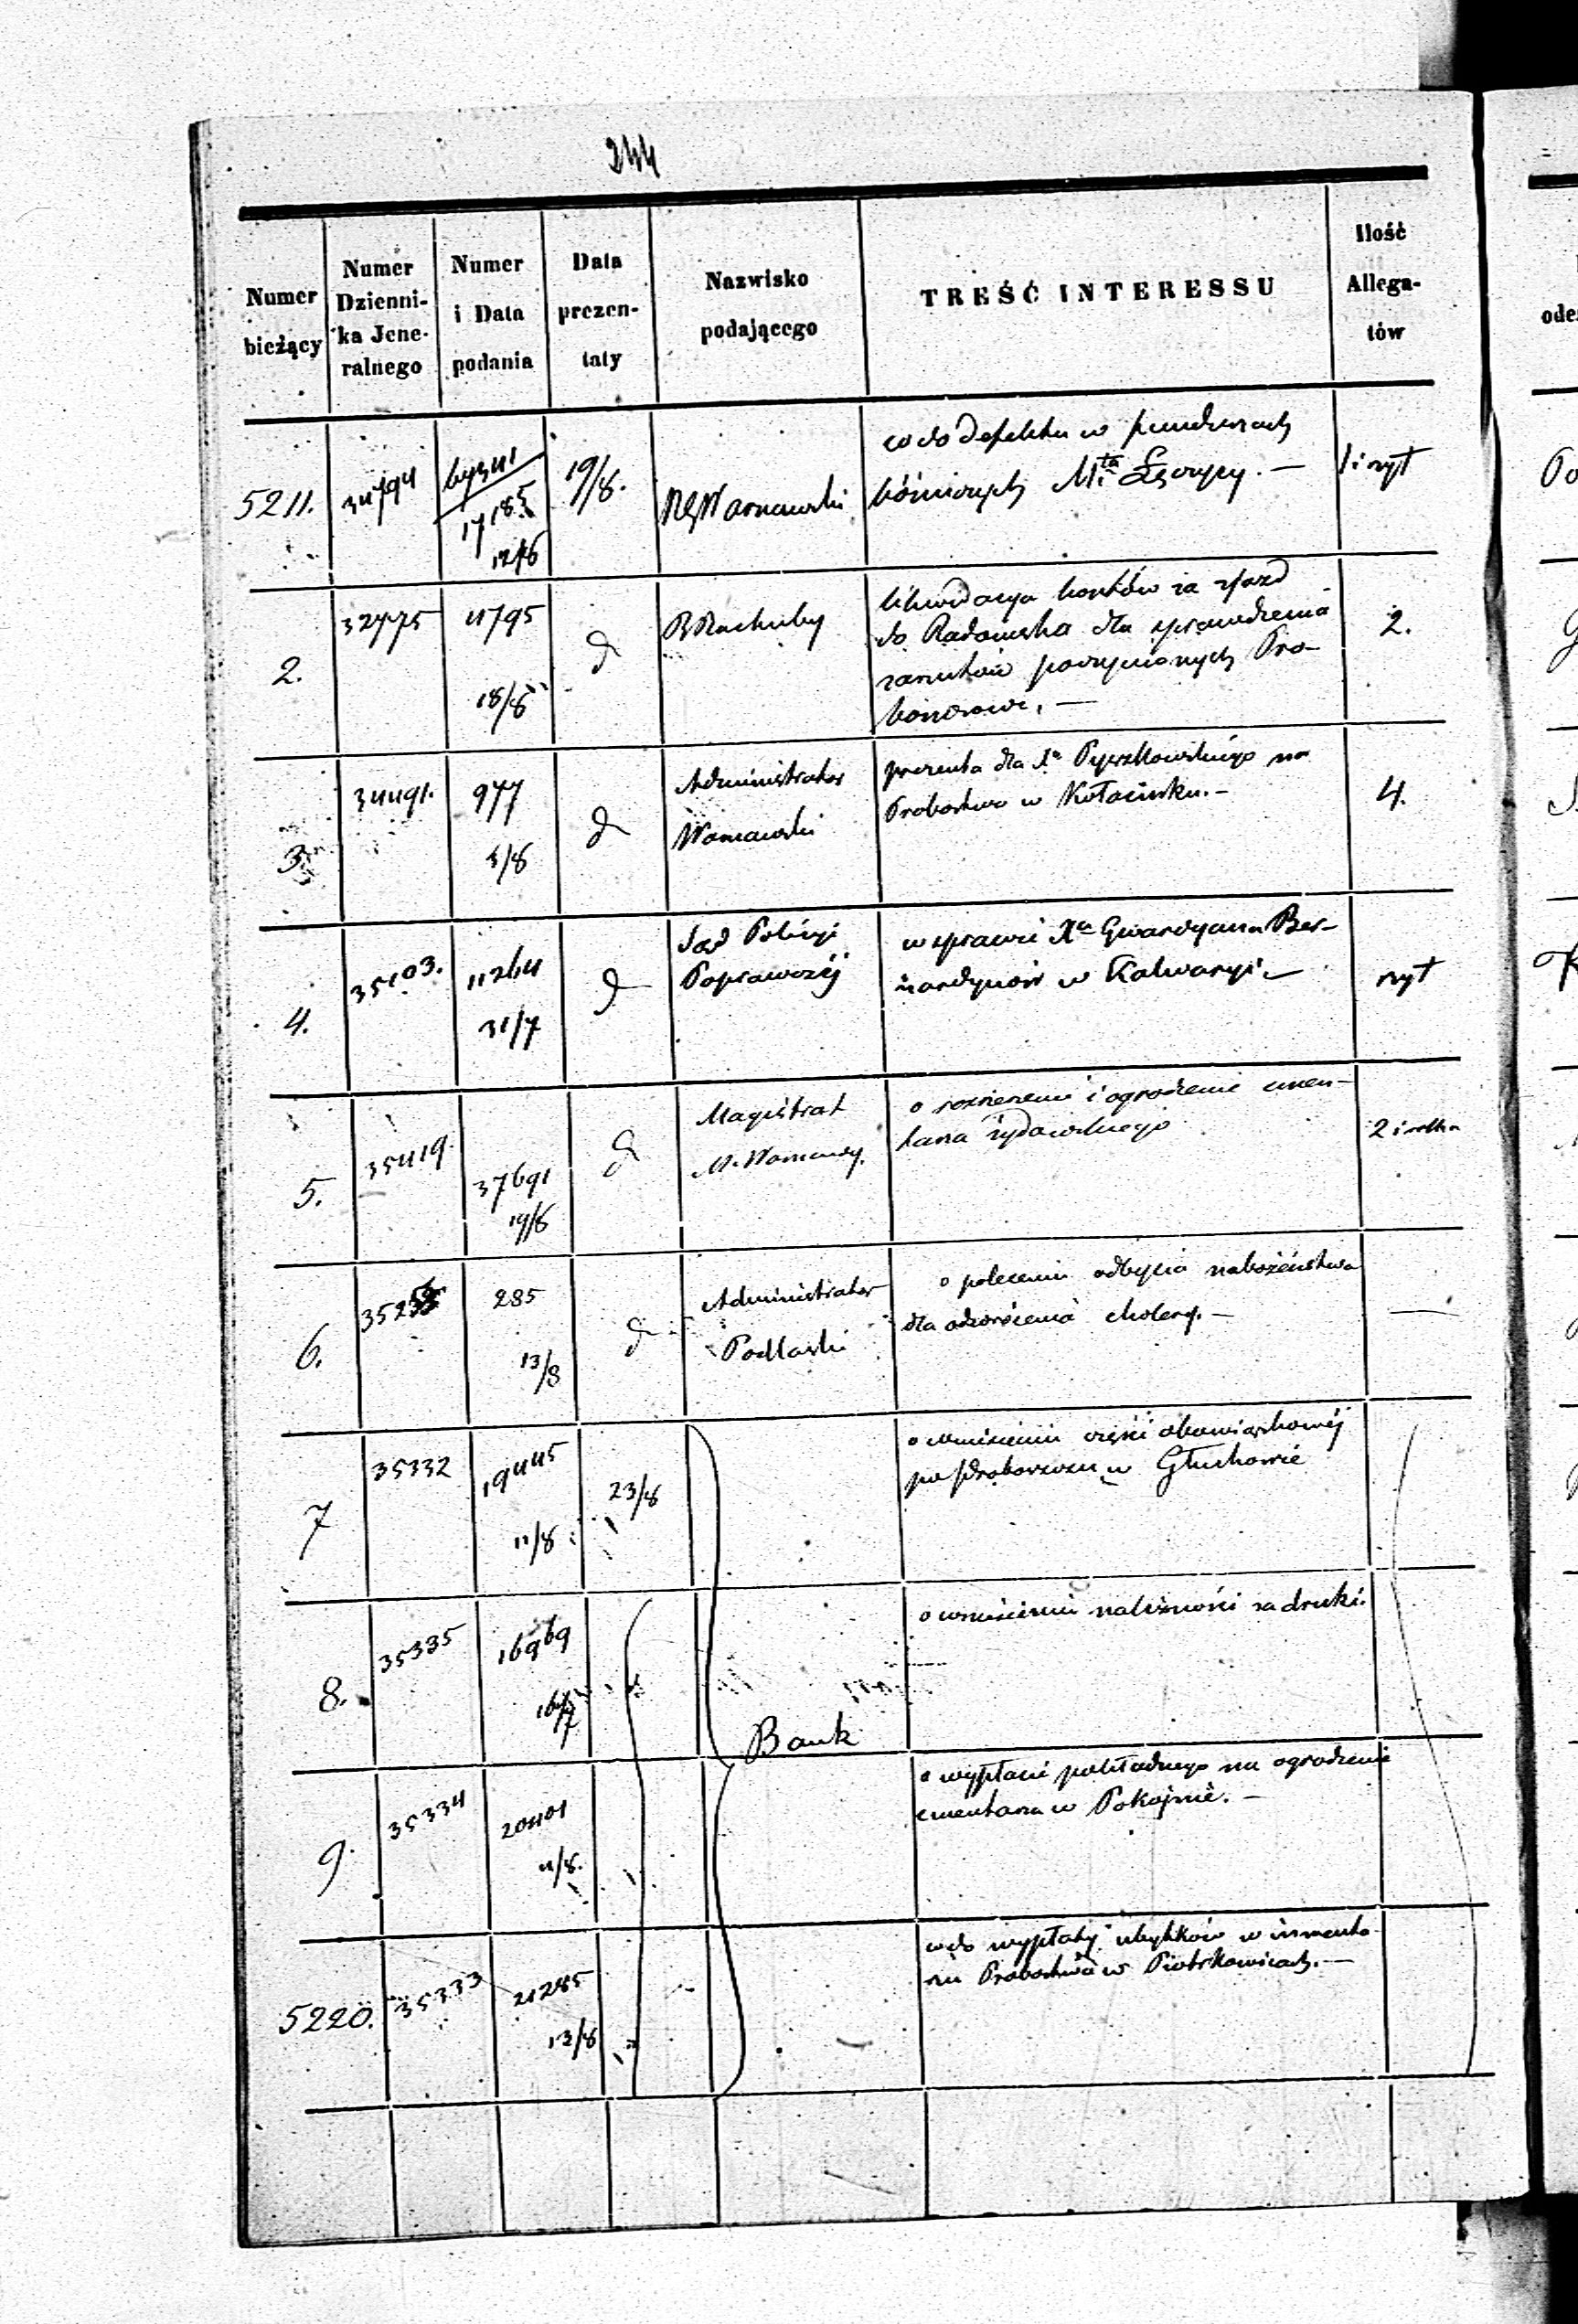 244
Numer bieżący
Numer Dzienni-ka Jene-ralnego
Numer i Data podania
Data prezen-taty
Nazwisko podającego
TREŚĆ INTERESSU
Ilość Allega-tów
5211. 34794 17185 12/8 19/8. RGWarszawski
co do defektu w funduszach
bóżniczych Mta Łęczycy. —
1 i szyt
2. 32775 4795 18/8 d
likwidacya kosztów za zjazd
do Radomska dla sprawdzenia
zarzutów poczynionych Pro-
boszczowi. —
2.
3. 34491. 977 5/8 d Administrator
Warszawski
prezenta dla Xa Pyszkowskiego na
Probostwo w Kołacinku. —
4.
4. 35103. 11264 31/7 d Sąd Policyi
Poprawczéj
w sprawie Xa Gwardyana Ber-
nardynów w Kalwaryi —
szyt
5. 35419. 37691 19/8 d Magistrat
M. Warszawy.
o rozszerzenie i ogrodzenie cmen-
tarza żydowskiego
6. 285 13/8 d Administrator
Podlaski
o polecenie odbycia nabożeństwa
dla odwrócenia cholery. —
7 35332 19445 11/8 23/8
o wniesieniu części obowiązkowéj
po Proboszczu w Głuchowie
8. 35335 16969 16/7
o wniesieniu należności za druki.
Bank
9. 35334 20401 11/8.
o wypłacie pokładnego na ogrodzenie
cmentarza w Pokojnie. —
5220. 35333 21285 13/8
co do wypłaty ubytków w inwenta-
rzu Probostwa w Piotrkowicach. —